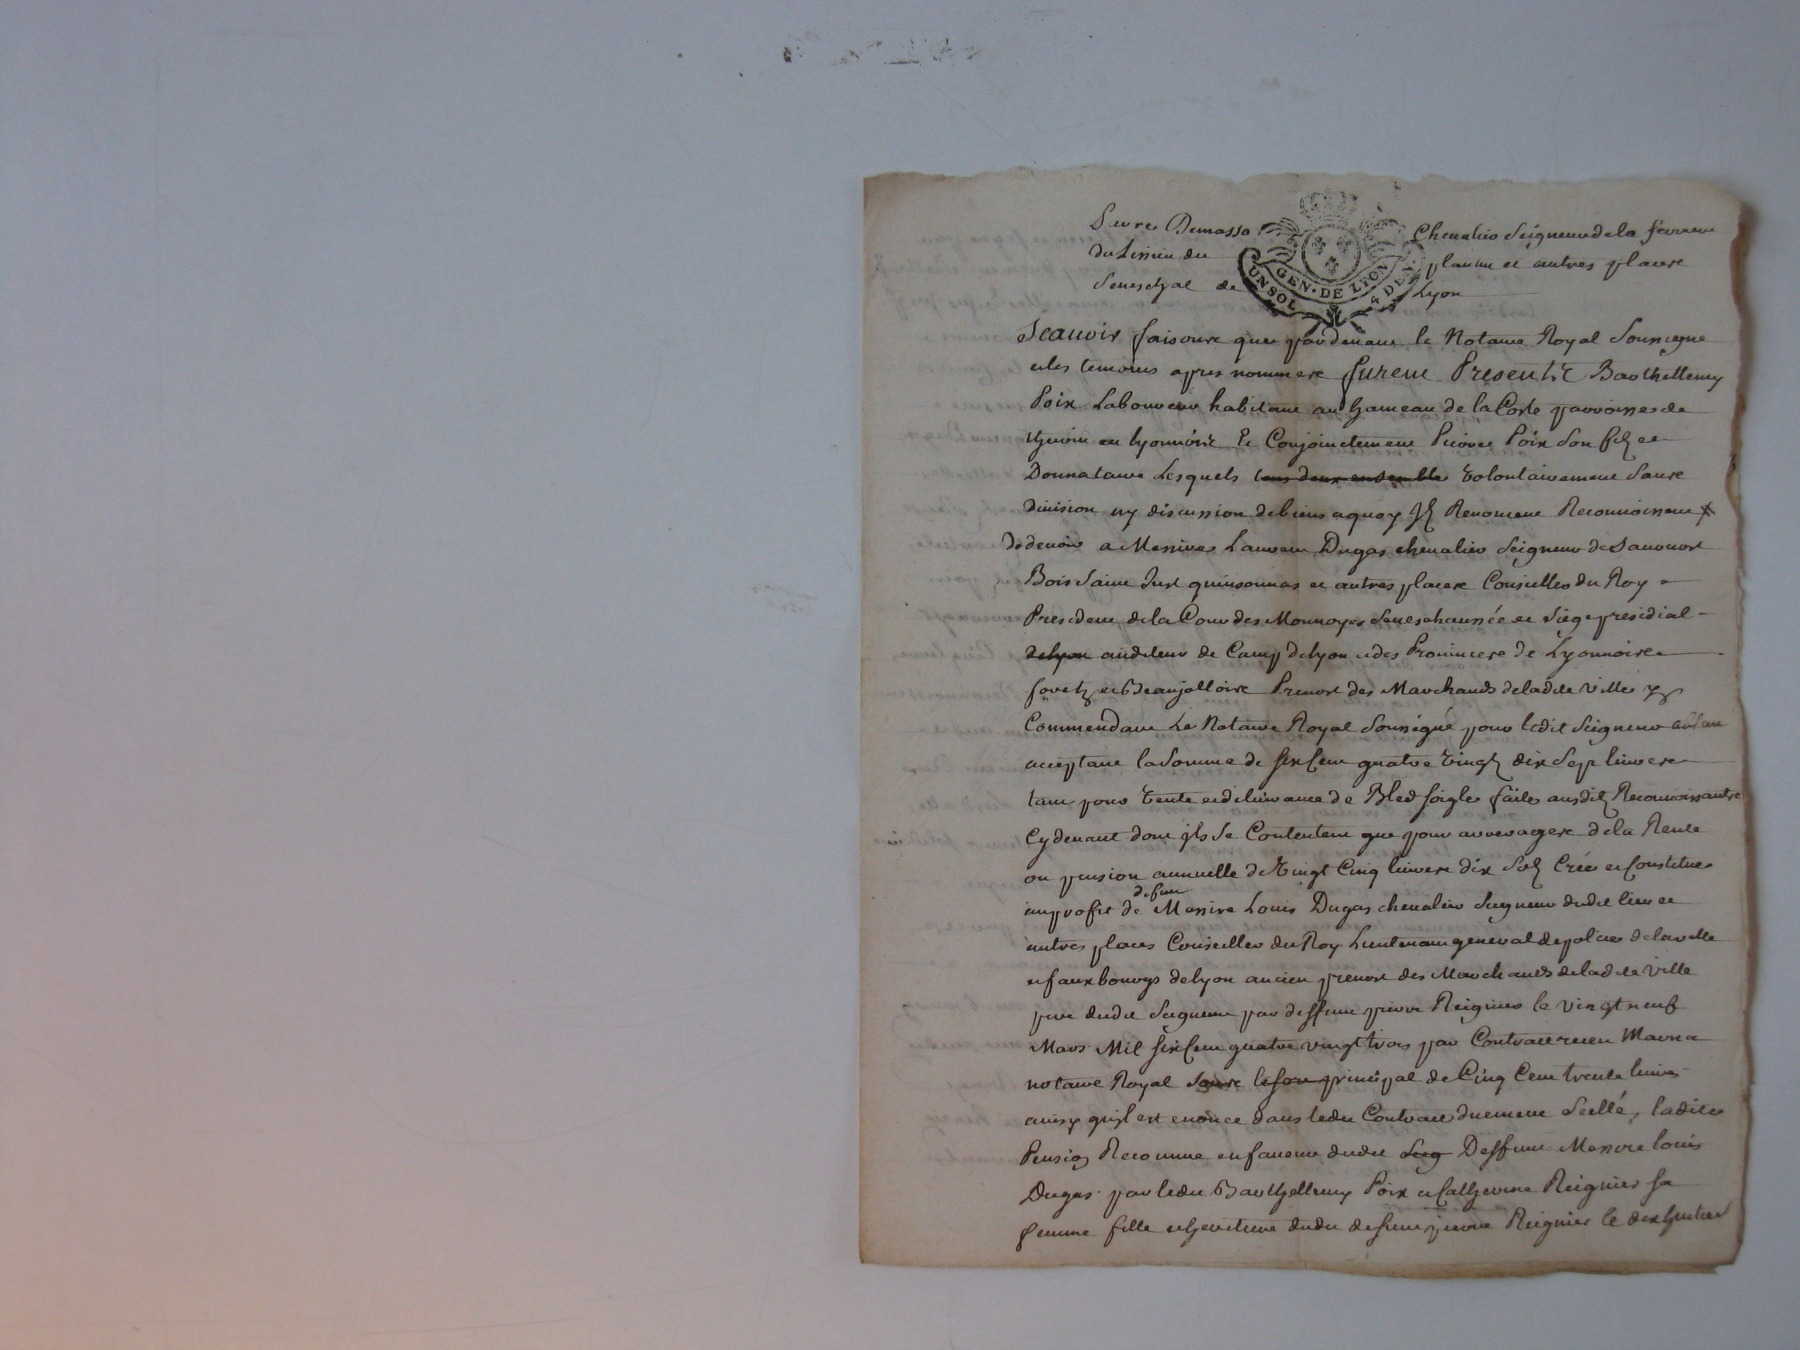 Pierre Demasso Chevalier Seigneur de la ferriere
du Lissieu du plantin et autres places
Seneschal de Lyon
GEN. DE LYON
UN SOL 4 DEN.
Scauoir faisons que pardeuant le Notaire Royal Soussigne
et les temoins apres nommes furent Presents Barthellemy
Poix Laboureur habitant au hameau de la Coste parroisse de
en lyonnois Et Conjointement Pierre Poix Son filz et
Donnataire Lesquels tous deux ensemble Volontairement Sans
diuision ny discussion de biens a quoy Ilz Renoncent Reconnoissent
de deuoir a Messire Laurent Dugas cheualier Seigneur de Sauonost
Bois Saint Just quinsonnas et autres places Conseiller du Roy
President de la Cour des Monnoyes Seneschaussée et Siege presidial
de lyon auditeur de Camp de lyon et des Prouinces de Lyonnois
foretz et Beaujollois Preuost des Marchands de ladite Ville
Commendant Le Notaire Royal Soussigné pour ledit Seigneur absent
acceptant la Somme de Six Cent quatre Vingtz dix Sept liures
tant pour Vente et deliurance de Bled Soigle faites ausditz Reconnoissants
Cy deuant dont ils Se Contentent que pour arrerages de la Rente
ou pension annuelle de Vingt Cinq liures dix Solz Créé et Constitué
defunt
au profit de Messire Louis Dugas cheualier Seigneur dudit lieu et
autres places Conseiller du Roy Lieutenant general de police de la ville
et fauxbourgs de lyon ancien preuost des Marchands de ladite Ville
pere dudit Seigneur par deffunt pierre Reignier le Vingt neuf
Mars Mil Six Cent quatre vingt trois par Contract receu
notaire Royal Sous le Sort principal de Cinq Cent trente liures
ainsy qu'il est enoncé dans ledit Contract duement Scellé, ladite
Pension Reconnue en faueur dudit Seig Deffunt Messire louis
Dugas par ledit Barthellemy Poix et Catherine Reignier Sa
femme fille et heritiere dudit defunt pierre Reignier le dix huitieme